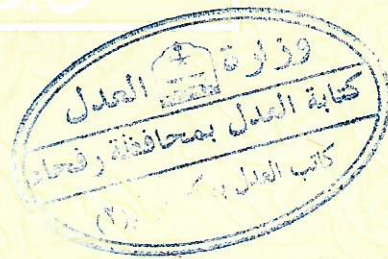 وزارة العدل
كتابة العدل بمحافظة رفحاء
كاتب العدل (٢)